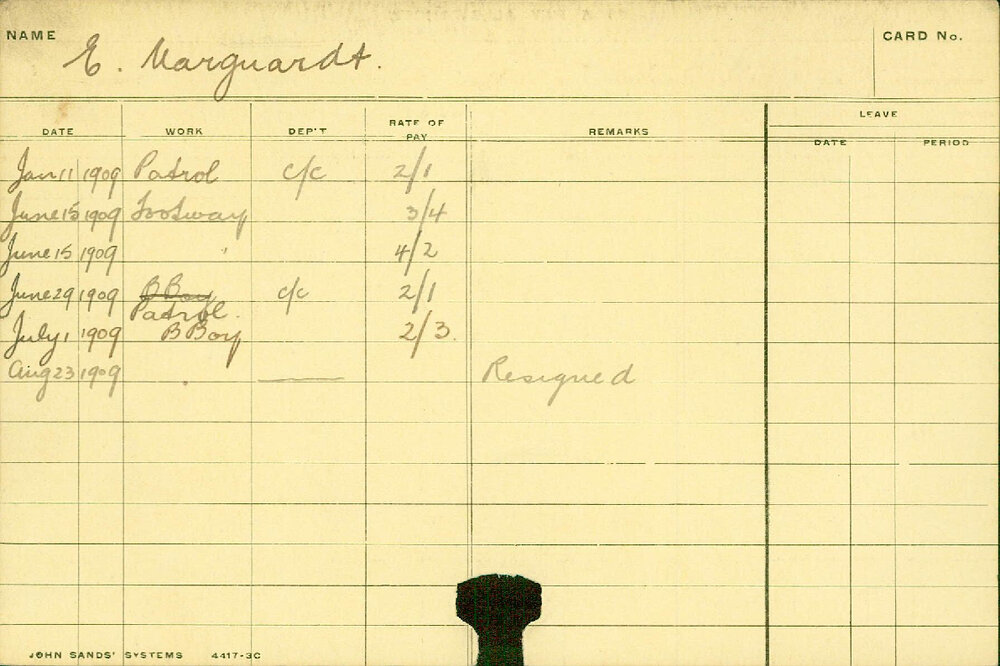 NAME E. Marquardt. CARD No.
LEAVE
DATE WORK DEP'T RATE OF PAY REMARKS DATE PERIOD
Jan 11 1909 Patrol c/c 2/1
June 15 1909 Footway 3/4
June 15 1909 " 4/2
June 29 1909 B Boy c/c 2/1
Patrol.
July 1 1909 B Boy 2/3.
Aug 23 1909 Resigned
JOHN SANDS' SYSTEMS 4417-3C